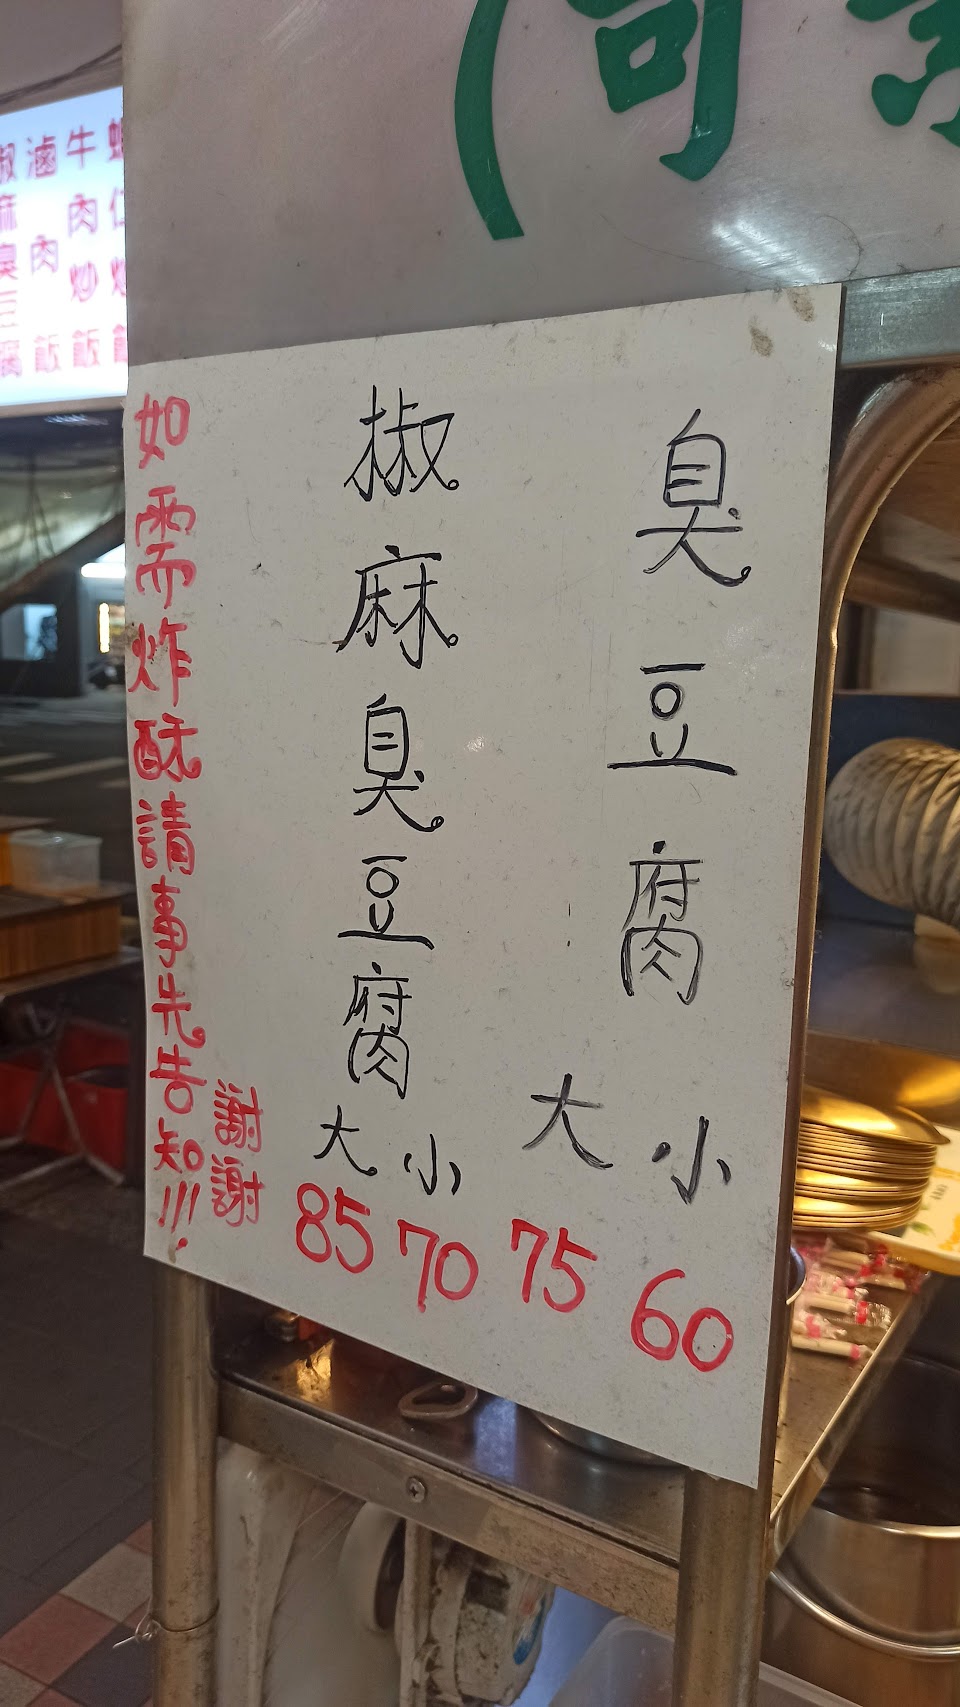 (可
臭豆腐
小 60
大 75
椒麻臭豆腐
小 70
大 85
如需炸酥請事先告知!!!
謝謝
仁炒
牛肉炒飯
滷肉飯
椒麻臭豆腐